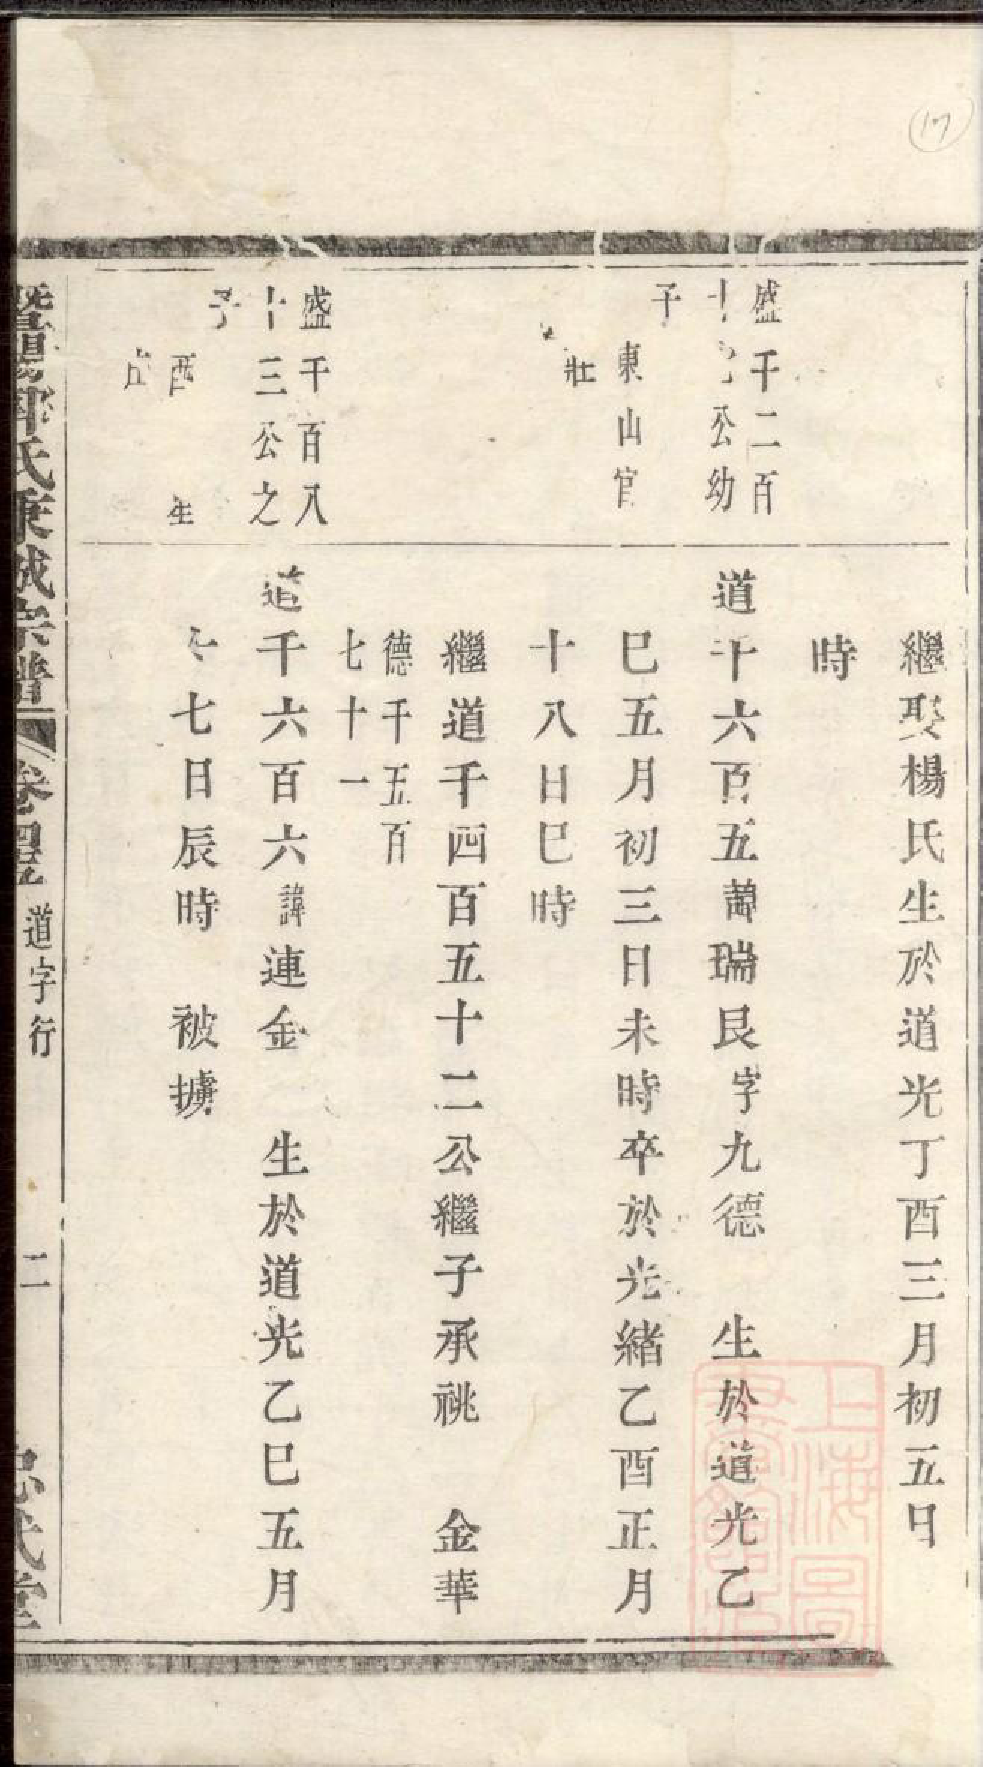 17
繼娶楊氏生於道光丁酉三月初五日
時
盛千二百
公幼
子
東山官
壯
道千六百五諱瑞艮字九德 生於道光乙
巳五月初三日未時卒於光緒乙酉正月
十八日巳時
繼道千四百五十二公繼子承祧 金華
德千五百
七十一
盛千百八
十三公之
子
西 生
道千六百六諱連金 生於道光乙巳五月
七日辰時 被擄
氏
宗譜
卷四
道字行
二
堂
上海圖